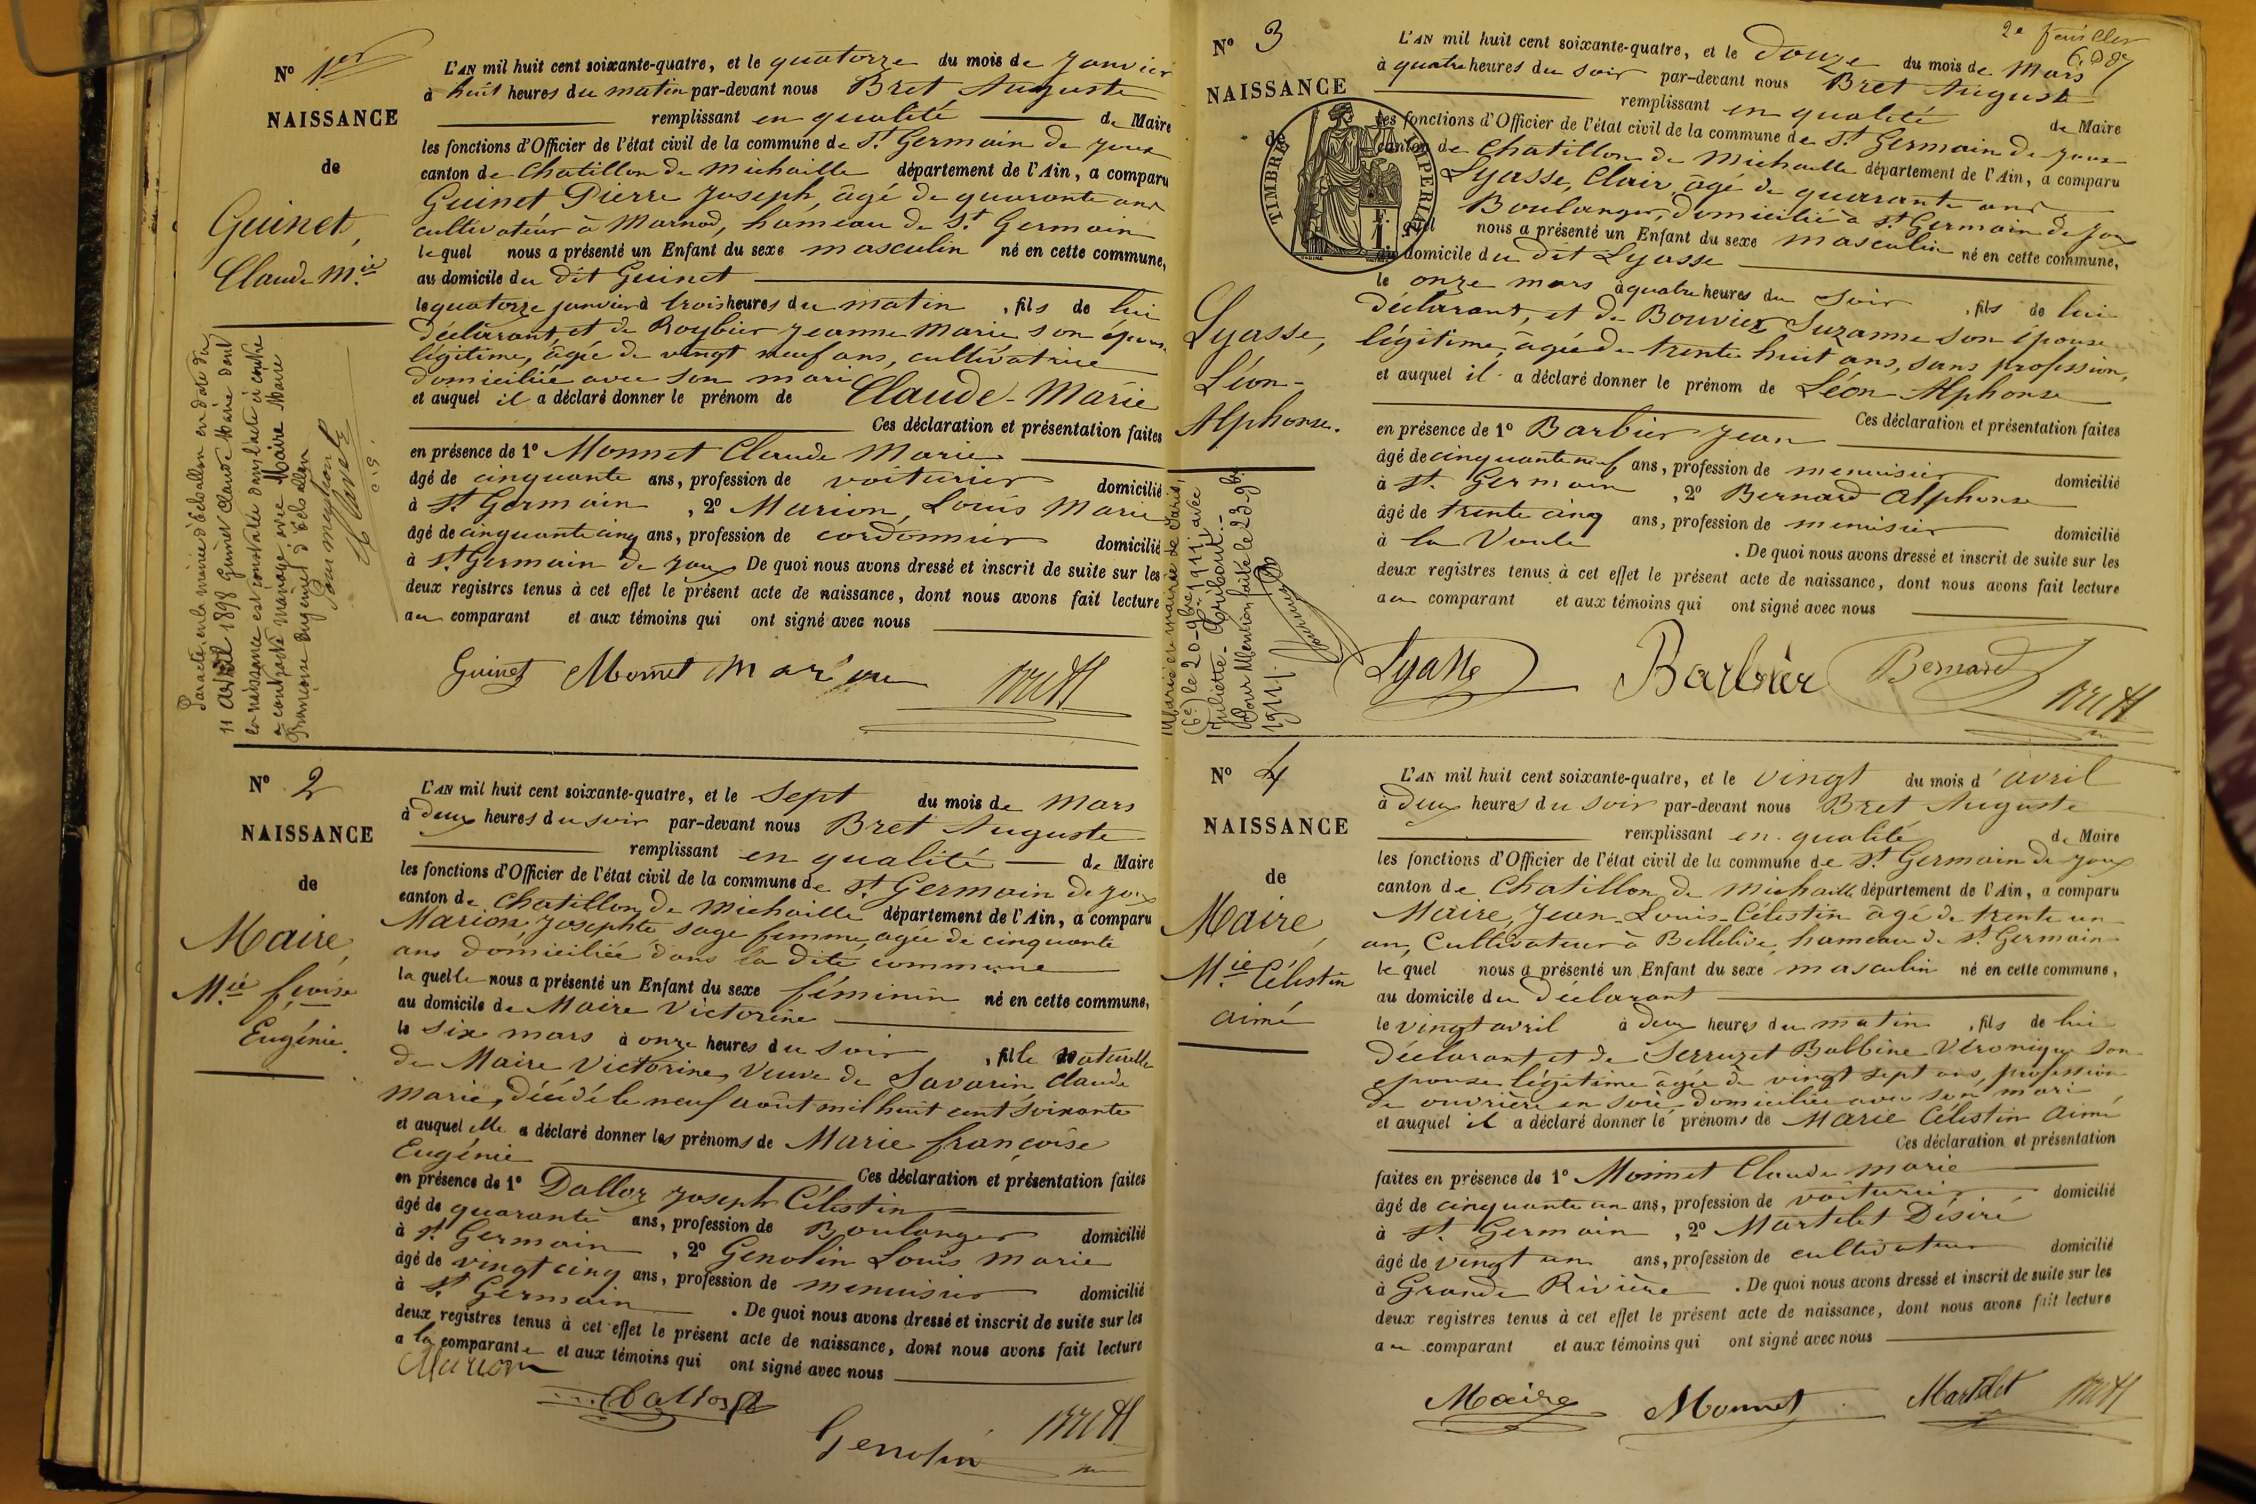 No 1er
NAISSANCE
de
Guinet,
Claude Mie
L'AN mil huit cent soixante-quatre, et le quatorze du mois de Janvier
à huit heures du matin par-devant nous Bret Auguste
remplissant en qualité de Maire
les fonctions d'Officier de l'état civil de la commune de St Germain de Joux
canton de Chatillon de Michaille département de l'Ain, a comparu
Guinet Pierre Joseph, âgé de quarante ans
cultivateur à Marnod, hameau de St Germain
lequel nous a présenté un Enfant du sexe masculin né en cette commune,
au domicile du dit Guinet
le quatorze janvier à trois heures du matin, fils de lui
déclarant, et de Roybier Jeanne Marie son épouse
légitime, âgée de vingt neuf ans, cultivatrice
domiciliée avec son mari
et auquel il a déclaré donner le prénom de Claude-Marie
Ces déclaration et présentation faites
en présence de 1o Monnet Claude Marie
âgé de cinquante ans, profession de voiturier domicilié
à St Germain, 2o Marion, Louis Marie
âgé de cinquante cinq ans, profession de cordonnier domicilié
à St Germain de Joux De quoi nous avons dressé et inscrit de suite sur les
deux registres tenus à cet effet le présent acte de naissance, dont nous avons fait lecture
au comparant et aux témoins qui ont signé avec nous
Guinet Monnet Marion Bret
Par acte, en la mairie d'Echallon en date du
11 avril 1898 Guinet Claude Marie dont
la naissance est constatée dans l'acte ci contre
a contracté mariage avec Maire Marie
Françoise Eugénie d'Echallon
Pour mention
No 2
NAISSANCE
de
Maire,
Mie fçoise
Eugénie.
L'AN mil huit cent soixante-quatre, et le sept du mois de Mars
à deux heures du soir par-devant nous Bret Auguste
remplissant en qualité de Maire
les fonctions d'Officier de l'état civil de la commune de St Germain de Joux
canton de Chatillon de Michaille département de l'Ain, a comparu
Marion, Josephte sage femme, agée de cinquante
ans domiciliée dans la dite commune
laquelle nous a présenté un Enfant du sexe féminin né en cette commune,
au domicile de Maire Victorine
le six mars à onze heures du soir, fille naturelle
de Maire Victorine, veuve de Savarin Claude
Marie, décédé le neuf août mil huit cent soixante
et auquel elle a déclaré donner les prénoms de Marie françoise
Eugénie Ces déclaration et présentation faites
en présence de 1o Dalloz Joseph Célestin
âgé de quarante ans, profession de Boulanger domicilié
à St Germain, 2o Genolin Louis Marie
âgé de vingt cinq ans, profession de menuisier domicilié
à St Germain. De quoi nous avons dressé et inscrit de suite sur les
deux registres tenus à cet effet le présent acte de naissance, dont nous avons fait lecture
a la comparante et aux témoins qui ont signé avec nous
Marion
Dalloz
Genolin Bret
2e feuillet
No 3
NAISSANCE
de
TIMBRE IMPERIAL
Lyasse,
Léon-
Alphonse.
L'AN mil huit cent soixante-quatre, et le Douze du mois de Mars
à quatre heures du soir par-devant nous Bret Auguste
remplissant en qualité de Maire
les fonctions d'Officier de l'état civil de la commune de St Germain de Joux
canton de Chatillon de Michaille département de l'Ain, a comparu
Lyasse, Clair âgé de quarante ans
Boulanger, domicilié à St Germain de Joux
lequel nous a présenté un Enfant du sexe masculin né en cette commune,
au domicile du dit Lyasse
le onze mars à quatre heures du soir, fils de lui
déclarant, et de Bouvier Suzanne son épouse
légitime, âgée de trente huit ans, sans profession,
et auquel il a déclaré donner le prénom de Léon Alphonse
Ces déclaration et présentation faites
en présence de 1o Barbier Jean
âgé de cinquante neuf ans, profession de menuisier domicilié
à St. Germain, 2o Bernard Alphonse
âgé de trente cinq ans, profession de menuisier domicilié
à la Voute. De quoi nous avons dressé et inscrit de suite sur les
deux registres tenus à cet effet le présent acte de naissance, dont nous avons fait lecture
au comparant et aux témoins qui ont signé avec nous
Lyasse Barbier Bernard Bret
Marié en mairie de Paris,
(6e) le 20 9bre 1911 avec
Juliette Gribaut.-
Pour Mention faite le 23 9bre
1911.
No 4
NAISSANCE
de
Maire,
Mie Célestin
aimé
L'AN mil huit cent soixante-quatre, et le vingt du mois d'avril
à deux heures du soir par-devant nous Bret Auguste
remplissant en qualité de Maire
les fonctions d'Officier de l'état civil de la commune de St Germain de Joux
canton de Chatillon de Michaille département de l'Ain, a comparu
Maire, Jean-Louis-Célestin âgé de trente un
an, Cultivateur à Bellelive, hameau de St Germain
lequel nous a présenté un Enfant du sexe masculin né en cette commune,
au domicile du déclarant
le vingt avril à deux heures du matin, fils de lui
déclarant et de Serruzet Balbine Véronique son
épouse légitime âgée de vingt sept ans, profession
de ouvrière en soie domiciliée avec son mari
et auquel il a déclaré donner le prénoms de Marie Célestin Aimé
Ces déclaration et présentation
faites en présence de 1o Monnet Claude Marie
âgé de cinquante un ans, profession de voiturier, domicilié
à St. Germain, 2o Martelet Désiré
âgé de vingt un ans, profession de cultivateur domicilié
à Grande Rivière. De quoi nous avons dressé et inscrit de suite sur les
deux registres tenus à cet effet le présent acte de naissance, dont nous avons fait lecture
au comparant et aux témoins qui ont signé avec nous
Maire Monnet Martelet Bret